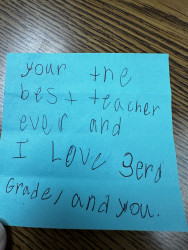 your the
best teacher
ever and
I Love 3erd
Grade, and you.